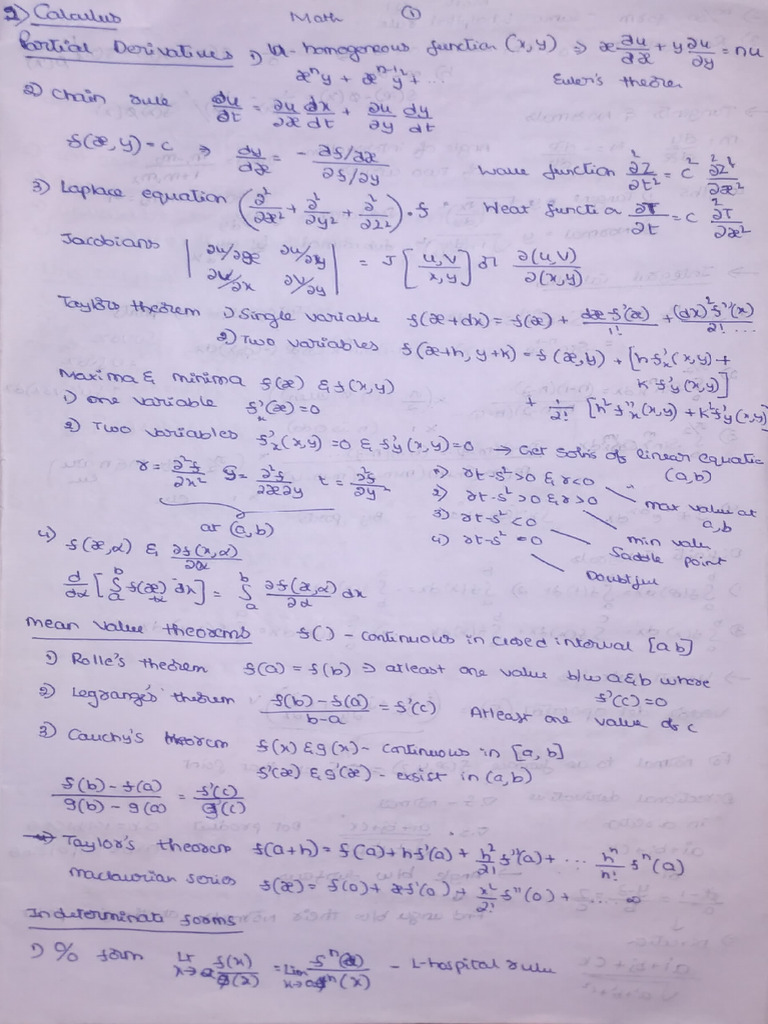 1) Calculus Math ①
Partial Derivatives 1) U - homogeneous function (x,y) ⇒ x ∂u/∂x + y ∂u/∂y = nu
xⁿy + xⁿ⁻¹y² + ... Euler's theorem
2) Chain rule du/dt = ∂u/∂x dx/dt + ∂u/∂y dy/dt
f(x,y) = c ⇒ dy/dx = - ∂f/∂x / ∂f/∂y Wave function ∂²Z/∂t² = C² ∂²Z/∂x²
3) Laplace equation (∂²/∂x² + ∂²/∂y² + ∂²/∂z²) . f Heat function ∂T/∂t = C² ∂²T/∂x²
Jacobians | ∂u/∂x ∂u/∂y ; ∂v/∂x ∂v/∂y | = J [u,v / x,y] or ∂(u,v)/∂(x,y)
Taylor's theorem 1) Single variable f(x+dx) = f(x) + dx f'(x)/1! + (dx)² f''(x)/2! ...
2) Two variables f(x+h, y+k) = f(x,y) + [h f'x(x,y) +
k f'y(x,y)]
Maxima & minima f(x) & f(x,y) + 1/2! [h² f''x(x,y) + k² f'y(x,y)
1) one variable f'(x) = 0
2) Two variables f'x(x,y) = 0 & f'y(x,y) = 0 → Get solns of linear equatic (a,b)
r = ∂²f/∂x² S = ∂²f/∂x∂y t = ∂²f/∂y² at (a,b)
1) rt-s² > 0 & r<0 max value at a,b
2) rt-s² > 0 & r>0 min value
3) rt-s² < 0 Saddle point
4) rt-s² = 0 Doubtful
4) f(x,α) & ∂f(x,α)/∂α
d/dα [∫ₐᵇ f(x,α) dx] = ∫ₐᵇ ∂f(x,α)/∂α dx
Mean value theorems f() - continuous in closed interval [a b]
1) Rolle's theorem f(a) = f(b) ⇒ atleast one value b/w a&b where f'(c) = 0
2) Legrange's theorem f(b) - f(a) / b-a = f'(c) Atleast one value of c
3) Cauchy's theorem f(x) & g(x) - continuous in [a, b]
f'(x) & g'(x) - exsist in (a,b)
f(b) - f(a) / g(b) - g(a) = f'(c) / g'(c)
→ Taylor's theorem f(a+h) = f(a) + h f'(a) + h²/2! f''(a) + ... hⁿ/n! fⁿ(a)
Maclaurian series f(x) = f(0) + x f'(0) + x²/2! f''(0) + ... ∞
Indeterminate forms
1) 0/0 form Lt x→a f(x)/g(x) = Lim x→a fⁿ(x)/gⁿ(x) - L-hospital rule